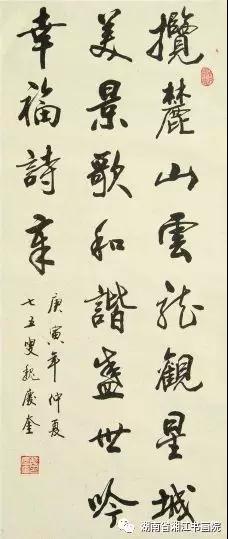 攬麓山雲龍觀星城
美景歌和諧盛世吟
幸福詩章
庚寅年仲夏
七五叟魏慶奎
湖南省湘江书画院